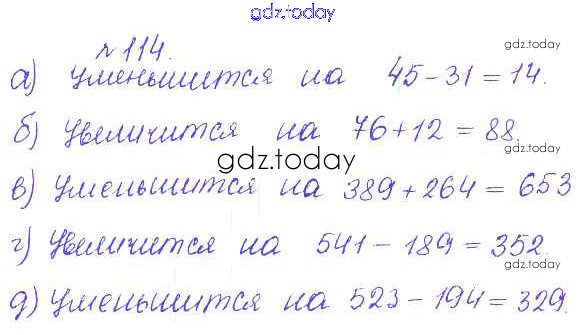 gdz.today
№ 114.
gdz.today
а) Уменьшится на 45 - 31 = 14.
gdz.today
б) Увеличится на 76 + 12 = 88.
gdz.today
gdz.today
в) Уменьшится на 389 + 264 = 653
gdz.today
г) Увеличится на 541 - 189 = 352.
gdz.today
д) Уменьшится на 523 - 194 = 329.
gdz.today